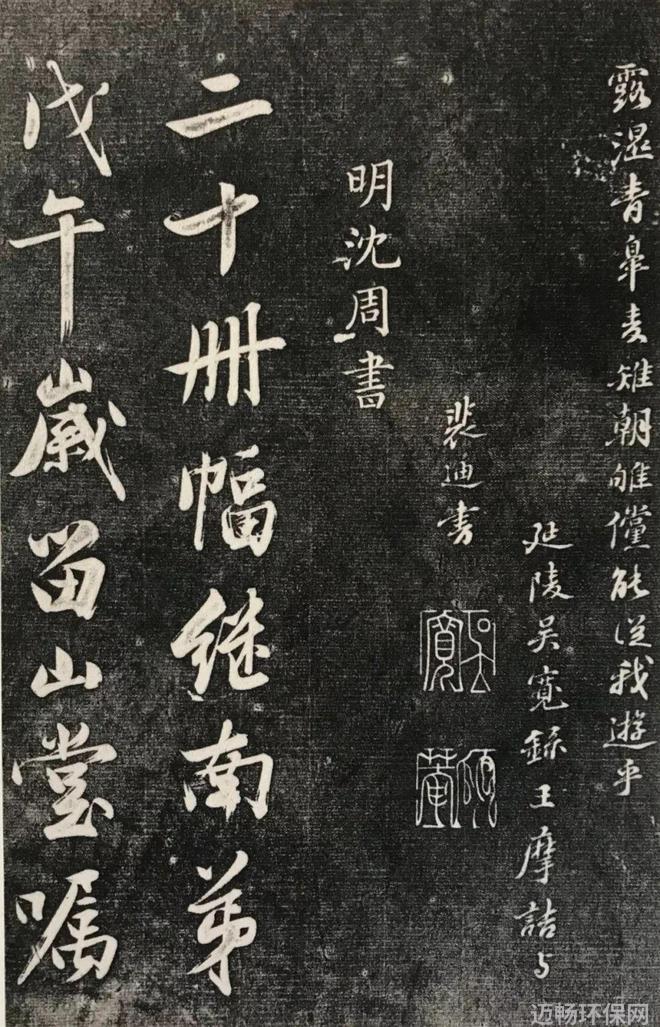 露湿青皋麦雉朝雊儻能从我游乎
延陵吴宽録王摩詰与
裴迪书
吴寬
明沈周書
二十册幅继南弟
戊午歲留山堂嘱
迈畅环保网